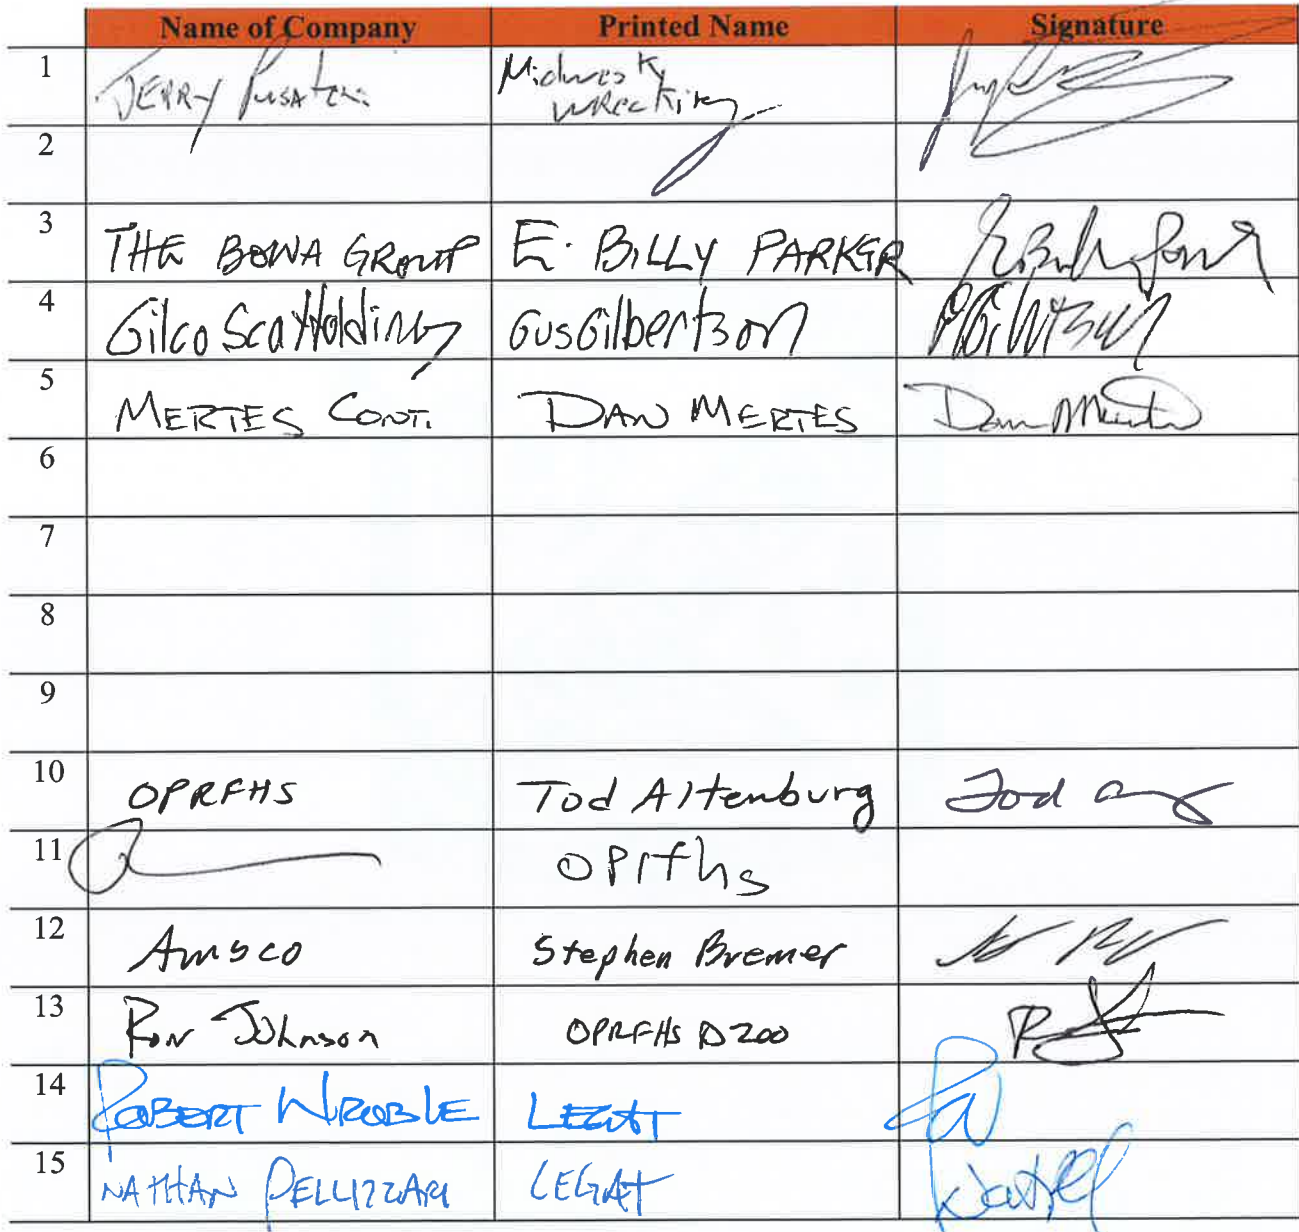 Name of Company Printed Name Signature
1 JERRY Pusateri Midwest Wrecking
2
3 THE BOWA GROUP E. BILLY PARKER
4 Gilco Scaffolding Gus Gilbertson
5 MERTES CONT. DAN MERTES Dan Mertes
6
7
8
9
10 OPRFHS Tod Altenburg Tod
11 oprfhs
12 Amsco Stephen Bremer
13 Ron Johnson OPRFHS D200
14 ROBERT WROBLE LEGAT
15 NATHAN PELLIZZARI LEGAT